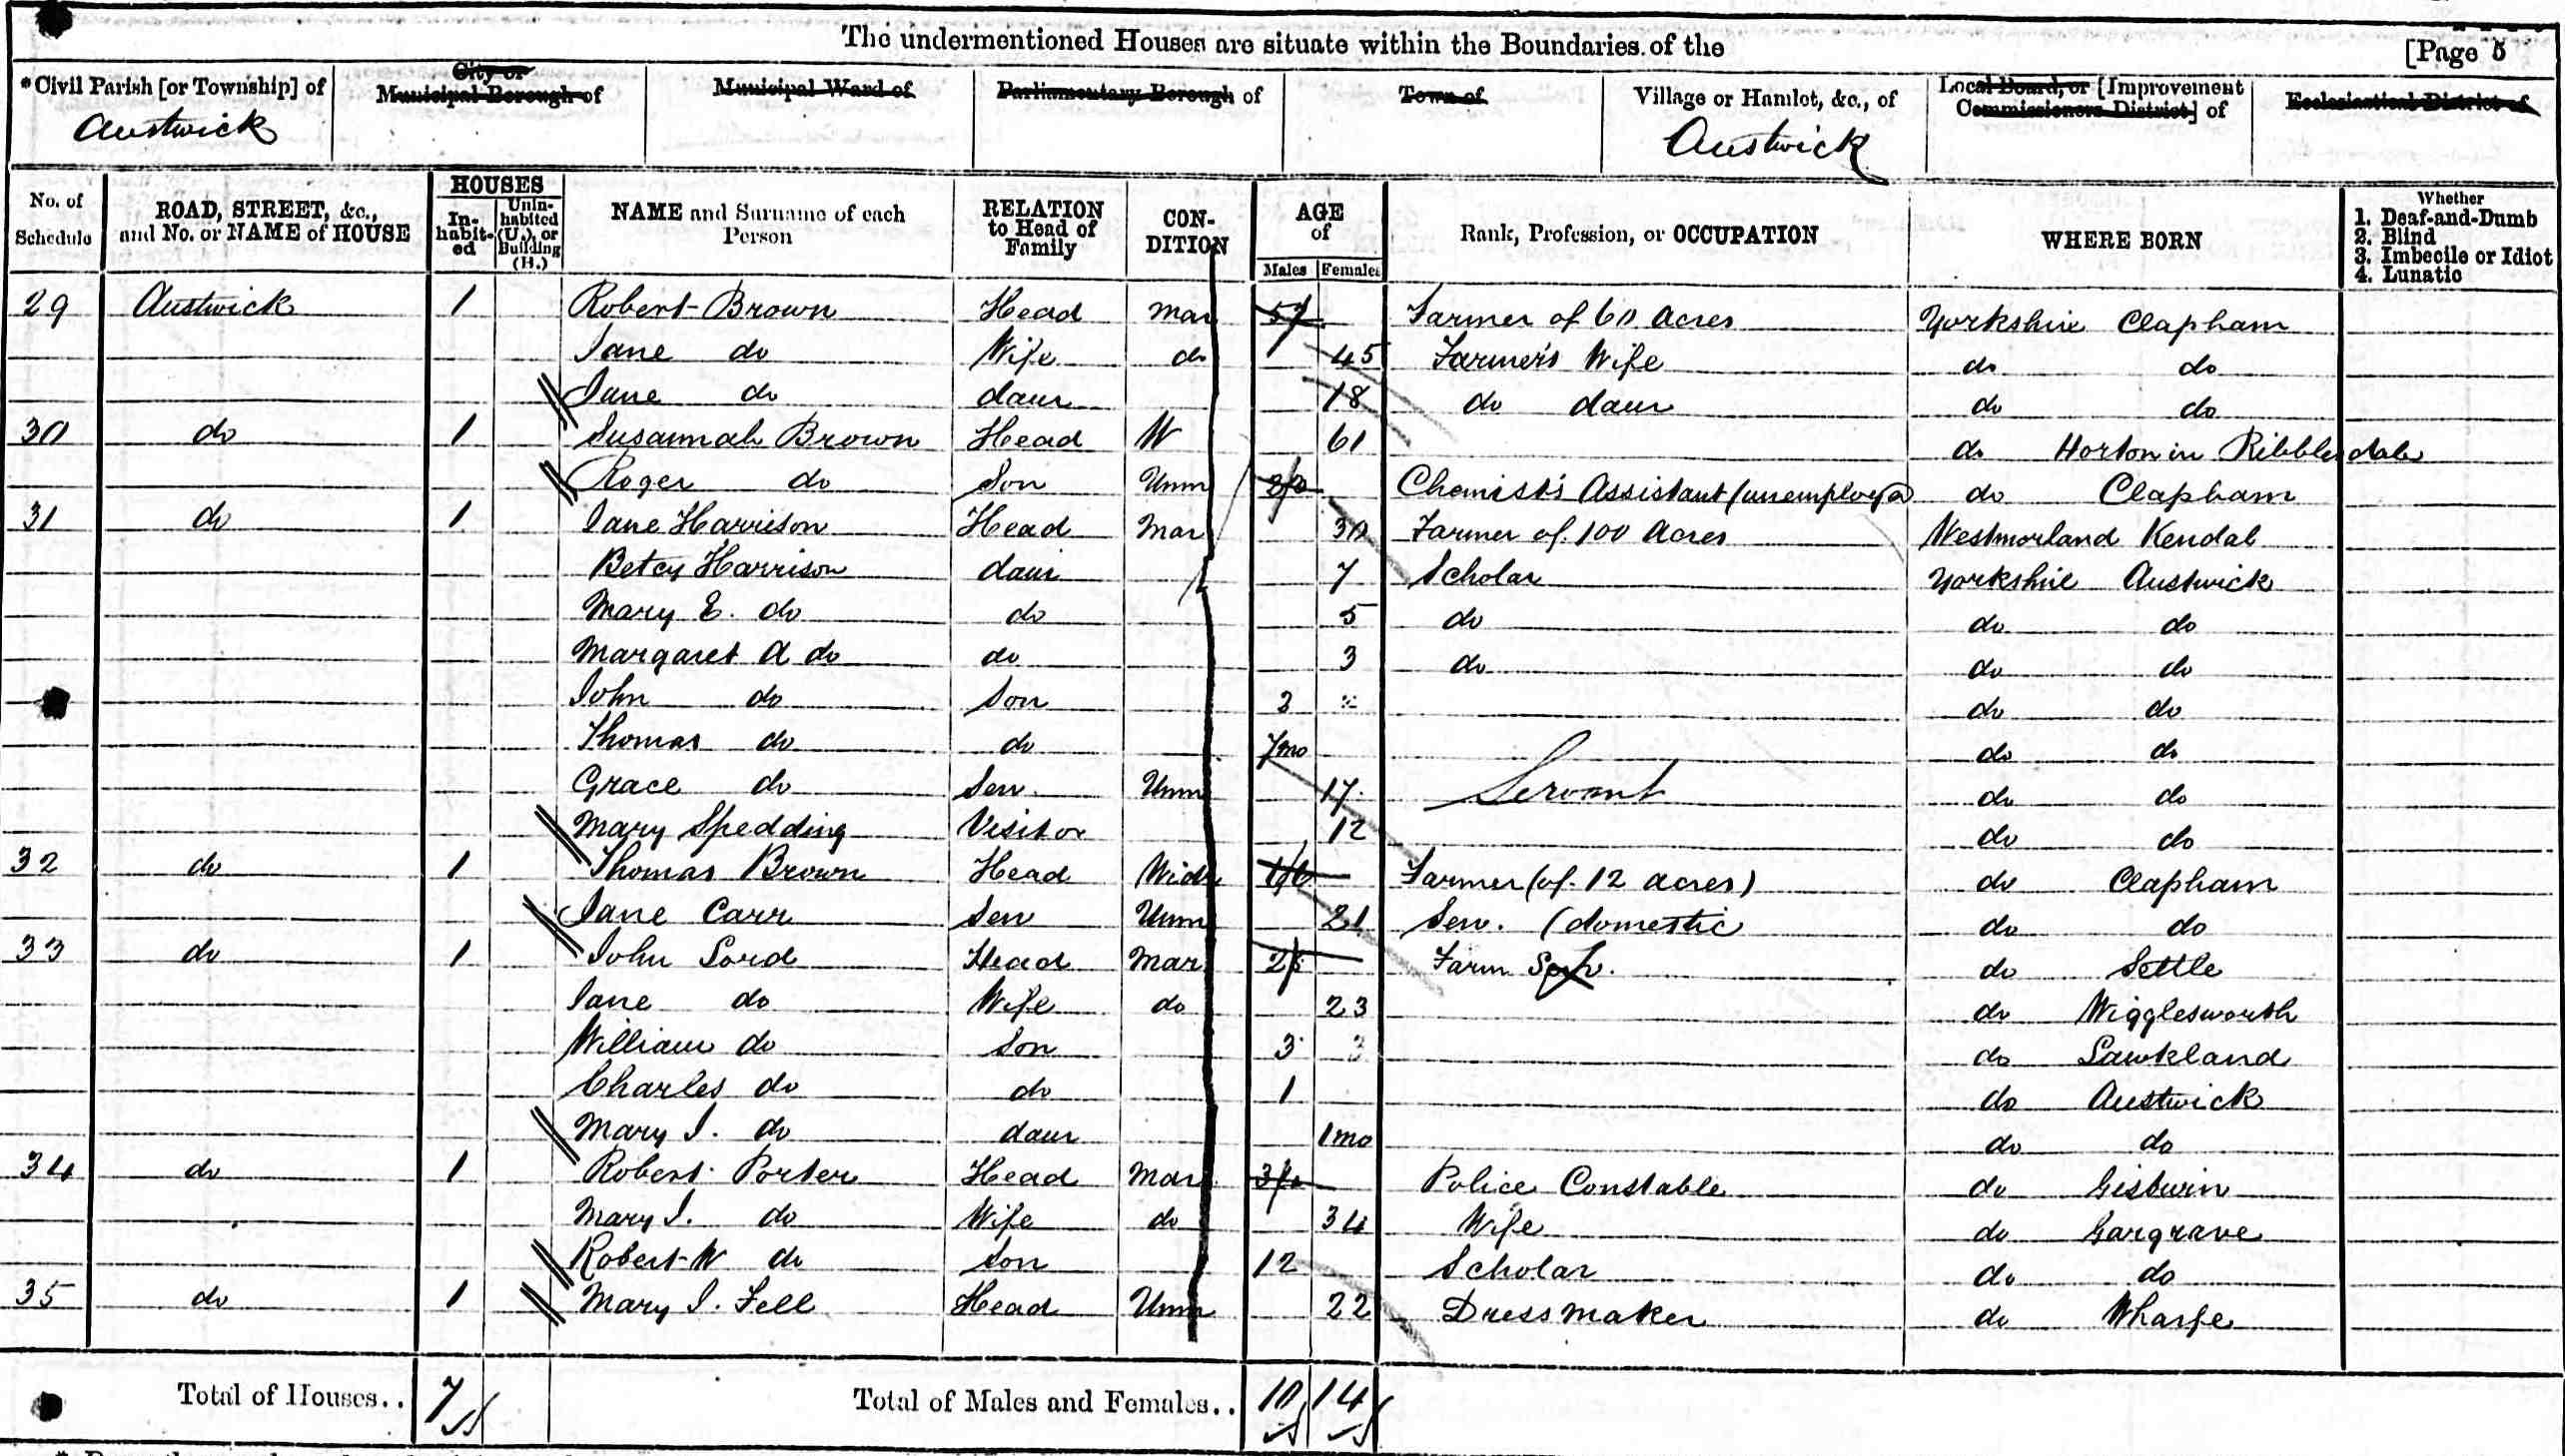 The undermentioned Houses are situate within the Boundaries of the [Page 5
*Civil Parish [or Township] of City or Municipal Borough of Municipal Ward of Parliamentary Borough of Town of Village or Hamlet, &c., of Local Board, or [Improvement Commissioners District] of Ecclesiastical District of
Austwick Austwick
No. of Schedule ROAD, STREET, &c., and No. or NAME of HOUSE HOUSES Inhabited Uninhabited (U.), or Building (B.) NAME and Surname of each Person RELATION to Head of Family CONDITION AGE of Males Females Rank, Profession, or OCCUPATION WHERE BORN Whether 1. Deaf-and-Dumb 2. Blind 3. Imbecile or Idiot 4. Lunatic
29 Austwick 1 Robert Brown Head Mar 57 Farmer of 60 Acres Yorkshire Clapham
Jane do Wife do 45 Farmer's Wife do do
Jane do daur 18 do daur do do
30 do 1 Susannah Brown Head W 61 do Horton in Ribblesdale
Roger do Son Unm Chemist's Assistant (unemployed) do Clapham
31 do 1 Jane Harrison Head Mar 30 Farmer of 100 Acres Westmorland Kendal
Betcy Harrison daur 7 Scholar Yorkshire Austwick
Mary E. do do 5 do do do
Margaret A do do 3 do do do
John do Son 2 do do
Thomas do do 7mo do do
Grace do Serv. Unm 17 Servant do do
Mary Spedding Visitor 12 do do
32 do 1 Thomas Brown Head Widr Farmer (of 12 acres) do Clapham
Jane Carr Serv Unm 21 Serv. (domestic do do
33 do 1 John Lord Head Mar Farm Serv. do Settle
Jane do Wife do 23 do Wigglesworth
William do Son 3 3 do Lawkland
Charles do do 1 do Austwick
Mary J. do daur 1mo do do
34 do 1 Robert Porter Head Mar Police Constable do Gisburn
Mary J. do Wife do 34 Wife do Gargrave
Robert W do Son 12 Scholar do do
35 do 1 Mary J. Fell Head Unm 22 Dress Maker do Wharfe
Total of Houses.. 7 Total of Males and Females.. 10 14